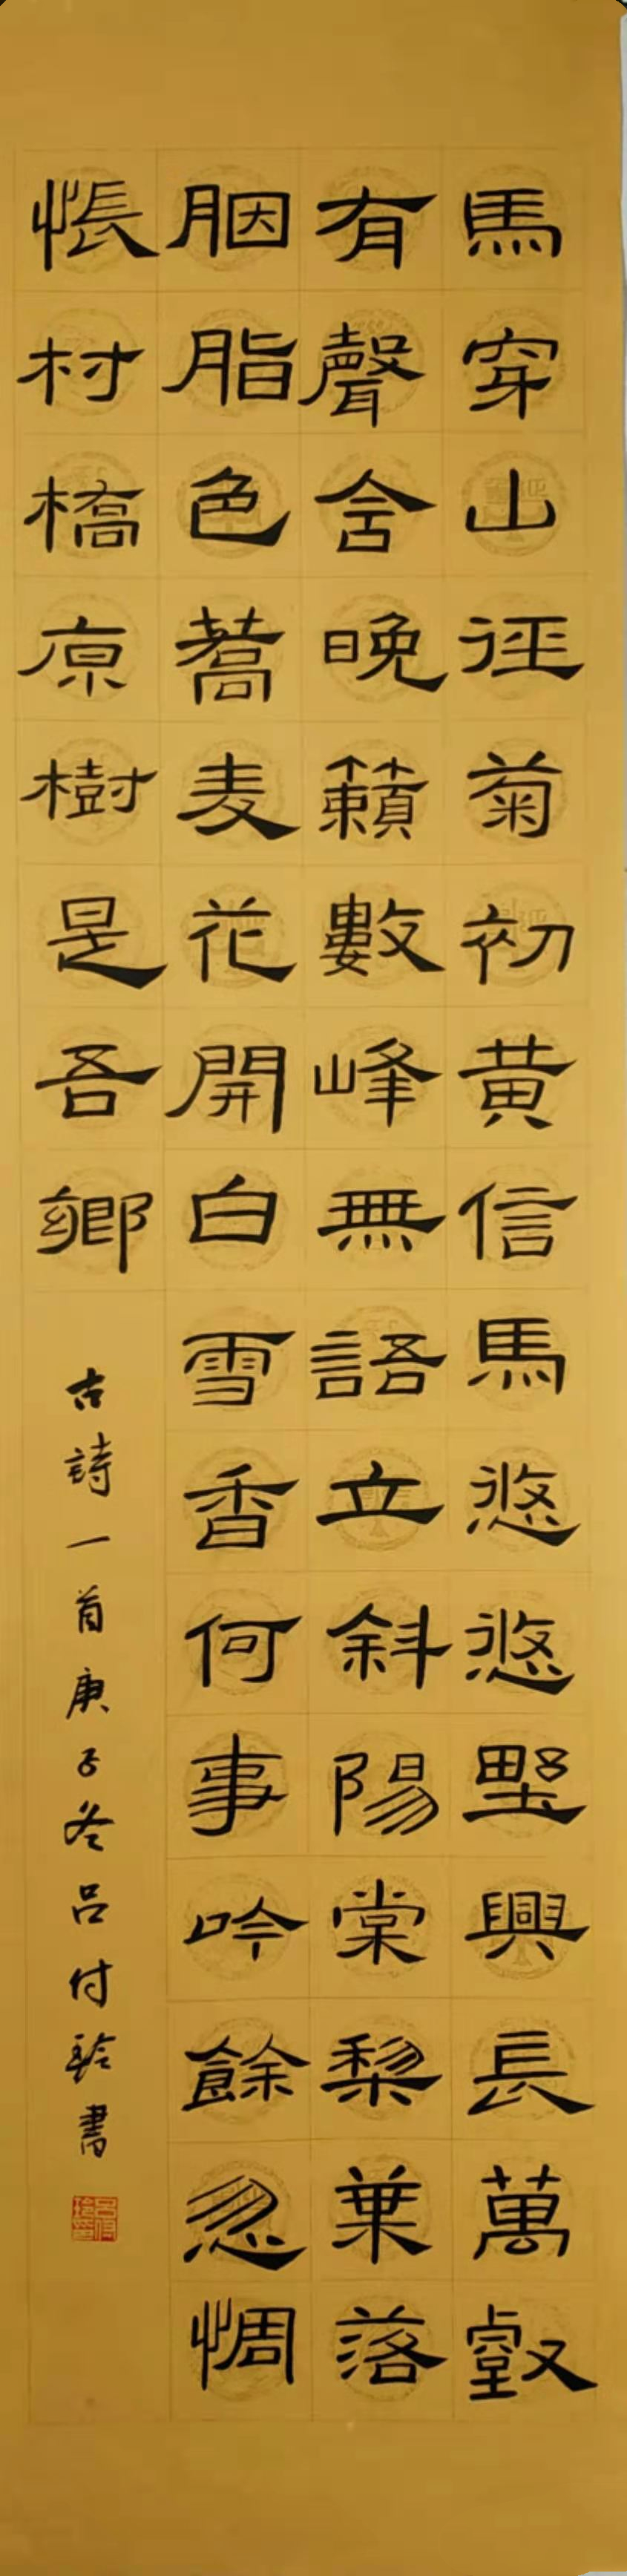 馬穿山徑菊初黄信馬悠悠野興長萬壑
有聲含晚籟數峰無語立斜陽棠梨葉落
胭脂色蕎麦花開白雪香何事吟餘忽惆
悵村橋原樹是吾鄉
古詩一首庚子冬吕付玲書